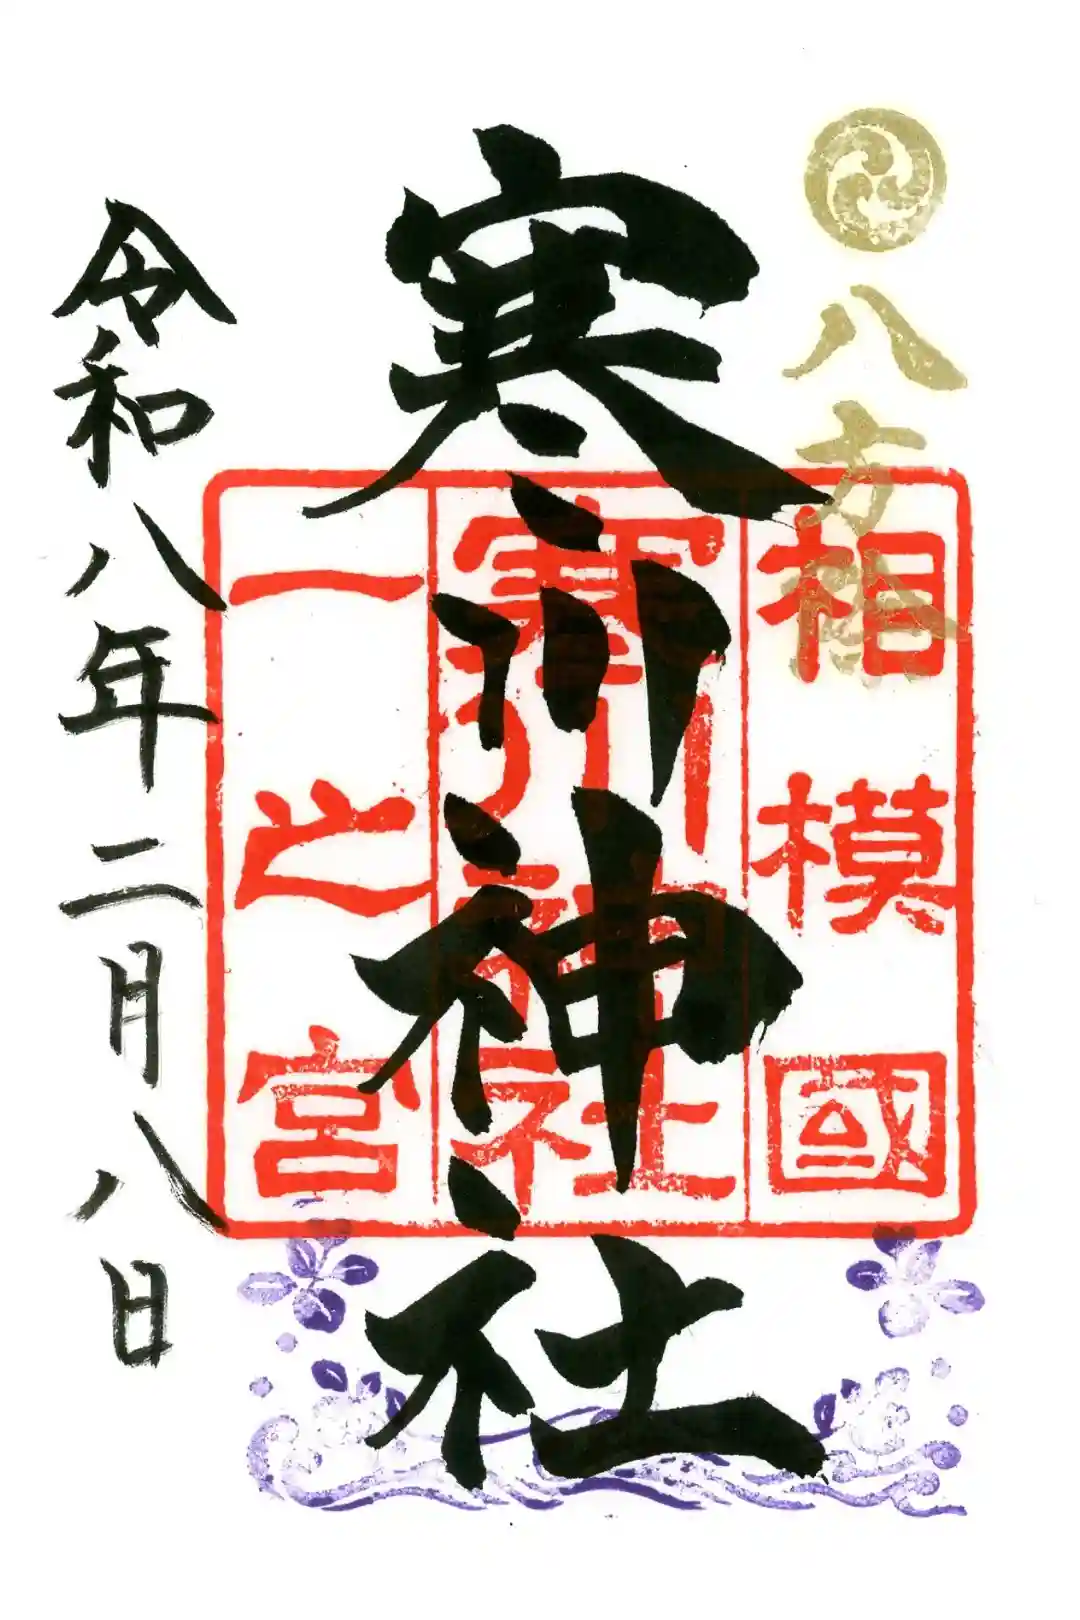 八方除
相模國
寒川神社
一之宮
寒川神社
令和八年二月八日